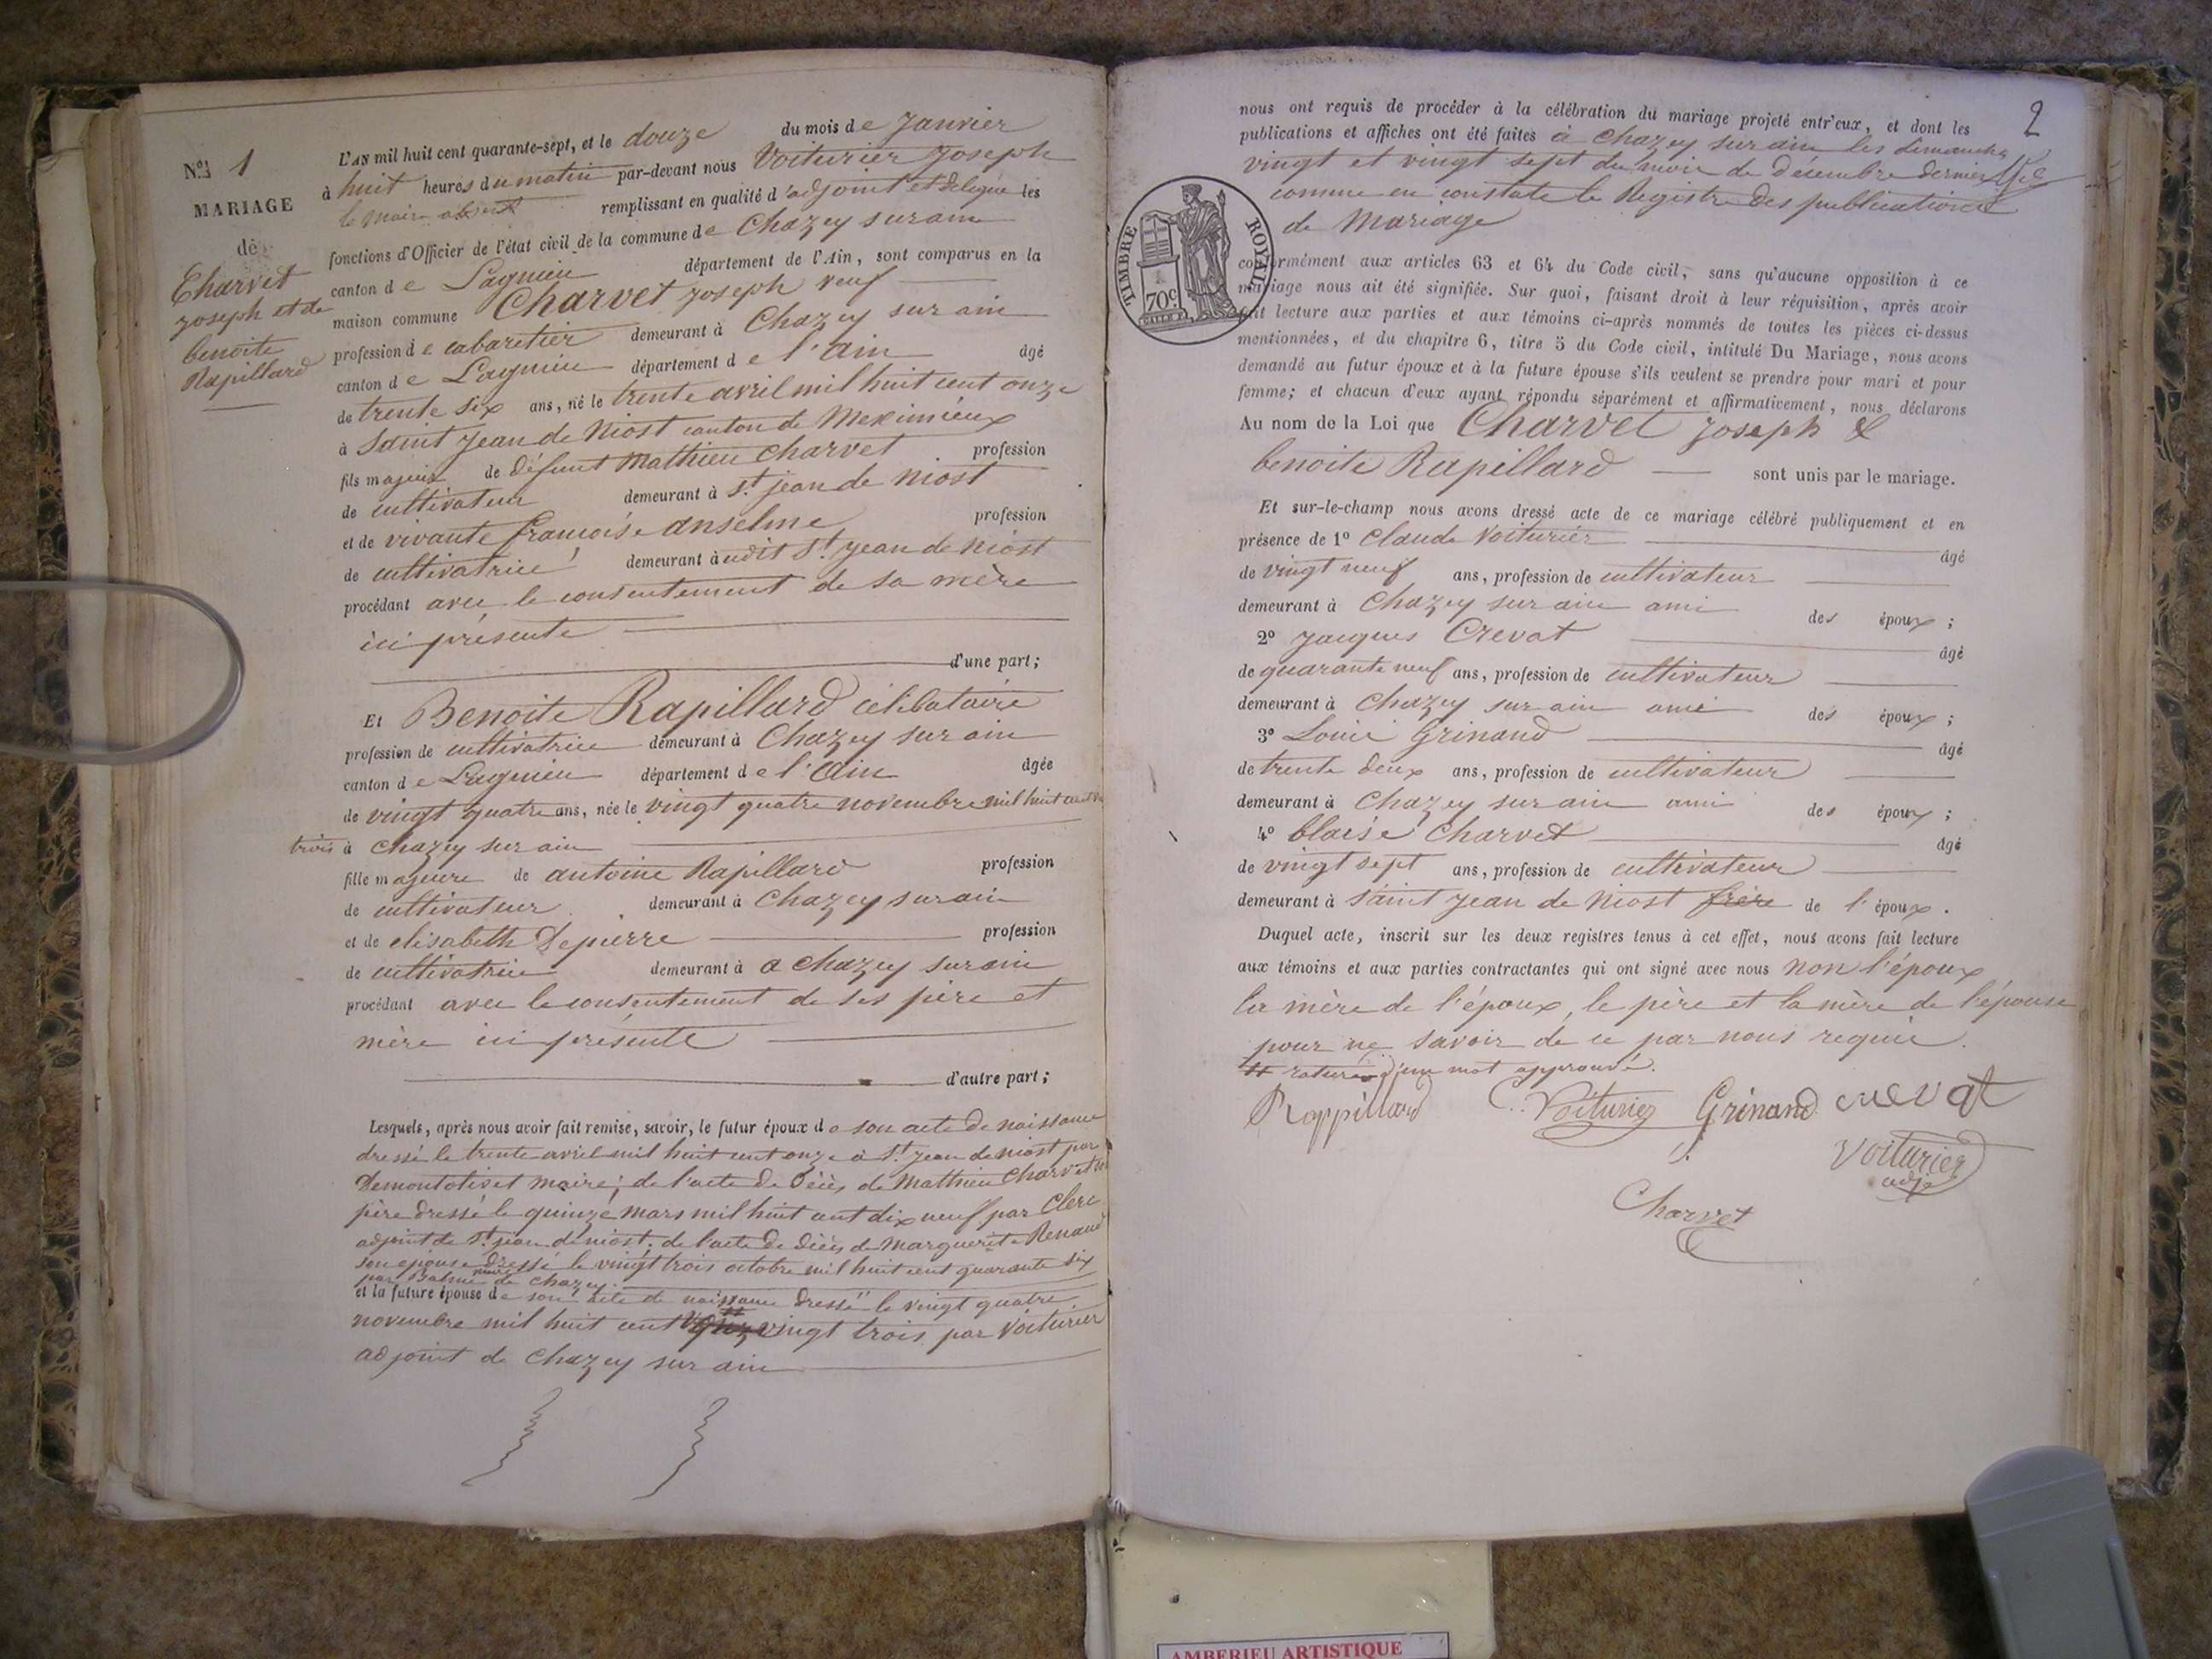 N.o 1
MARIAGE
de
Charvet
joseph et de
benoite
Rapillard
L'AN mil huit cent quarante-sept, et le douze du mois de Janvier
à huit heures du matin par-devant nous Voiturier Joseph
le maire absent remplissant en qualité d'adjoint et délégué les
fonctions d'Officier de l'état civil de la commune de Chazey sur ain
canton de Lagnieu département de l'Ain, sont comparus en la
maison commune Charvet joseph veuf
profession de cabaretier demeurant à Chazey sur ain
canton de Lagnieu département de l'ain âgé
de trente six ans, né le trente avril mil huit cent onze
à Saint jean de Niost canton de Meximieux
fils majeur de défunt Mathieu Charvet profession
de cultivateur demeurant à St. jean de Niost
et de vivante françoise anselme profession
de cultivatrice demeurant à udit St. jean de Niost
procédant avec le consentement de sa mère
ici présente
d'une part;
Et Benoite Rapillard célibataire
profession de cultivatrice demeurant à Chazey sur ain
canton de Lagnieu département de l'Ain âgée
de vingt quatre ans, née le vingt quatre novembre mil huit cent
trois à Chazey sur ain
fille majeure de antoine Rapillard profession
de cultivateur demeurant à Chazey sur ain
et de elisabeth Depierre profession
de cultivatrice demeurant à a Chazey sur ain
procédant avec le consentement de ses père et
mère ici présente
d'autre part;
Lesquels, après nous avoir fait remise, savoir, le futur époux de son acte de naissance
dressé le trente avril mil huit cent onze à St. jean de niost par
maire; de l'acte de décès de Matthieu Charvet
père dressé le quinze mars mil huit cent dix neuf par Clerc
adjoint de St. jean de niost; de l'acte de décès de Marguerite Renaud
son épouse dressé le vingt trois octobre mil huit cent quarante six
par maire de Chazey
et la future épouse de son acte de naissance dressé le vingt quatre
novembre mil huit cent vingt trois par Voiturier
adjoint de Chazey sur ain
2
nous ont requis de procéder à la célébration du mariage projeté entr'eux, et dont les
publications et affiches ont été faites à Chazey sur ain les dimanches
vingt et vingt sept du mois de désembre dernier
comme en constate le Registre des publications
de Mariage
TIMBRE ROYAL
70c
conformément aux articles 63 et 64 du Code civil, sans qu'aucune opposition à ce
mariage nous ait été signifiée. Sur quoi, faisant droit à leur réquisition, après avoir
fait lecture aux parties et aux témoins ci-après nommés de toutes les pièces ci-dessus
mentionnées, et du chapitre 6, titre 5 du Code civil, intitulé Du Mariage, nous avons
demandé au futur époux et à la future épouse s'ils veulent se prendre pour mari et pour
femme; et chacun d'eux ayant répondu séparément et affirmativement, nous déclarons
Au nom de la Loi que Charvet joseph &
benoite Rapillard sont unis par le mariage.
Et sur-le-champ nous avons dressé acte de ce mariage célébré publiquement et en
présence de 1o Claude Voiturier âgé
de vingt neuf ans, profession de cultivateur
demeurant à Chazey sur ain ami des époux;
2o jacques Crevat âgé
de quarante neuf ans, profession de cultivateur
demeurant à Chazey sur ain ami des époux;
3o Louis Grinand âgé
de trente deux ans, profession de cultivateur
demeurant à Chazey sur ain ami des époux;
4o blaise Charvet âgé
de vingt sept ans, profession de cultivateur
demeurant à Saint jean de Niost frère de l'époux.
Duquel acte, inscrit sur les deux registres tenus à cet effet, nous avons fait lecture
aux témoins et aux parties contractantes qui ont signé avec nous non l'époux
la mère de l'époux, le père et la mère de l'épouse
pour ne savoir de ce par nous requis.
raturé d'un mot approuvé.
Rappillard Voiturier Grinand crevat
Voiturier
adj
Charvet
AMBERIEU ARTISTIQUE